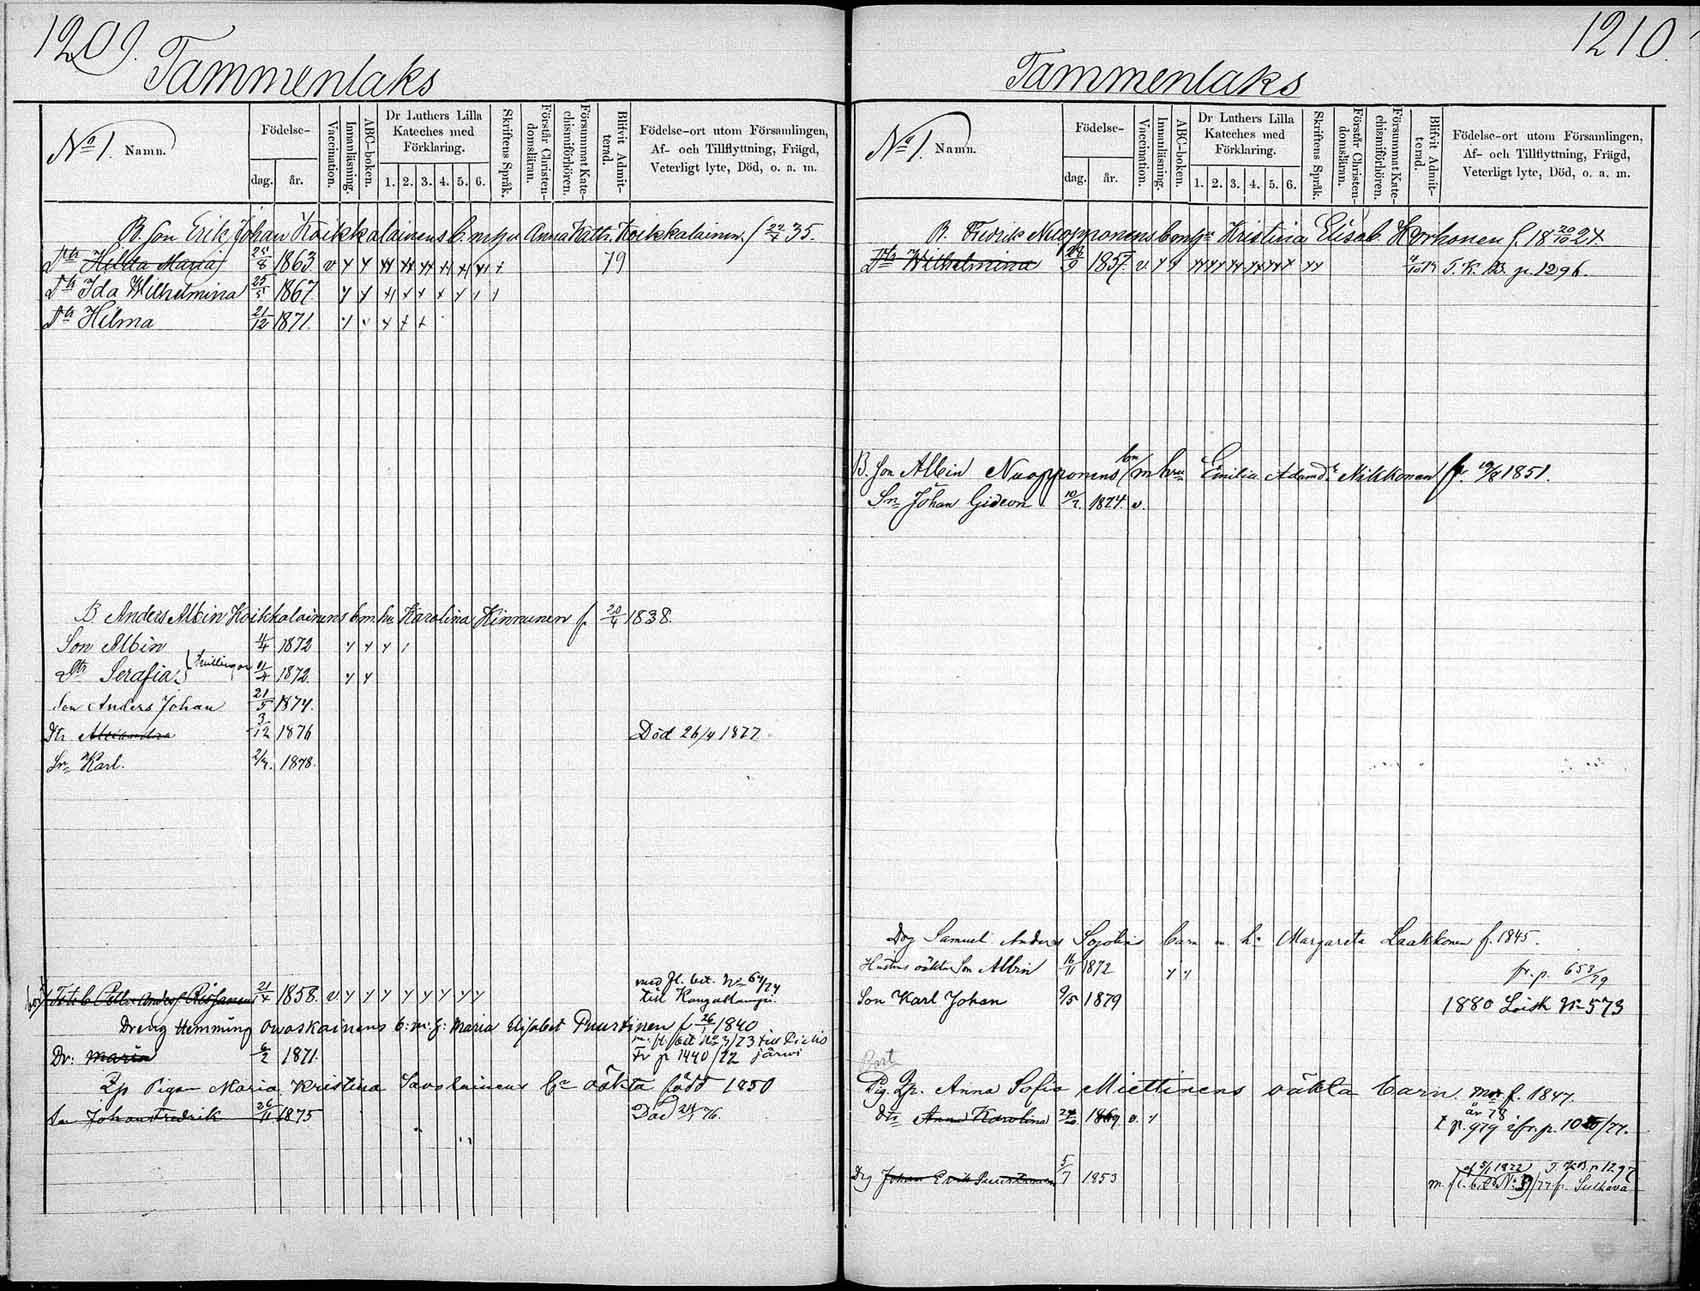 1209.
Tammenlaks
No 1. Namn.
Födelse-
dag. år.
Vaccination.
Innanläsning.
ABC-boken.
Dr Luthers Lilla Kateches med Förklaring.
1. 2. 3. 4. 5. 6.
Skriftens Språk.
Förstår Christendomsläran.
Försummat Katechismiförhören.
Blifvit Admitterad.
Födelse-ort utom Församlingen, Af- och Tillflyttning, Frägd, Veterligt lyte, Död, o. a. m.
B. son Erik Johan Koikkalainens b. m. hu Anna Kathr. Koikkalainen f 22/7 35.
Dtr Hilda Maria 25/8 1863 v 79
Dtr Ida Wilhelmina 25/5 1867
Dtr Hilma 21/12 1871.
B. Anders Albin Koikkalainens b. m. hu Karolina Kinnunen f. 20/4 1838.
Son Albin 4/4 1872
Dtr Serafia Tvillingar 4/4 1872
Son Anders Johan 21/5 1874.
Dtr Alexandra 3/12 1876 Död 26/4 1877
Sn Karl. 2/4. 1878.
Petter Anders 2/4 1858. v med fl. bet. No 67/74
till Kangaslampi.
Dreng Hemming Owaskainens b: m. h: Maria Elisabet Puurtinen f 26/1 1840
m. fl. bet No 3/73 till Pielis
Dr: Maria 6/2 1871. Fr p 1440/72 järwi
Lp Pigan Maria Kristina Savolainens bn oäkta född 1850
Son Johan Fredrik 26/11 1875 Död 76.
1210.
Tammenlaks
No 1. Namn.
Födelse-
dag. år.
Vaccination.
Innanläsning.
ABC-boken.
Dr Luthers Lilla Kateches med Förklaring.
1. 2. 3. 4. 5. 6.
Skriftens Språk.
Förstår Christendomsläran.
Försummat Katechismiförhören.
Blifvit Admitterad.
Födelse-ort utom Församlingen, Af- och Tillflyttning, Frägd, Veterligt lyte, Död, o. a. m.
B. Fredrik Nuopponens b m hu Kristina Elisab. Horhonen f. 18 20/10 24
Dtr Wilhelmina 1857. v. T. K. B. p. 1296.
B. son Albin Nuopponens bn m hru Emilia Adamdr Mikkonen f. 19/8 1851.
Sn Johan Gideon 10/7. 1874. v.
Drg Samuel Anders barn m. h. Margareta Laakkonen f. 1845.
Hustrus oäkta Son Albin 16/11 1872 fr. p. 653/79
Son Karl Johan 9/5 1879 1880 Loisk No 573
Pig. Lp. Anna Sofia Miettinens oäkta barn. mor f. 1847.
Dtr Anna Karolina 1869 v. år 78
t p. 979 ifr. p. /77.
Drg Johan Erik 5/7 1853 T. K. B. p 1297
m. fl. bet No /77 fr. Sulkava